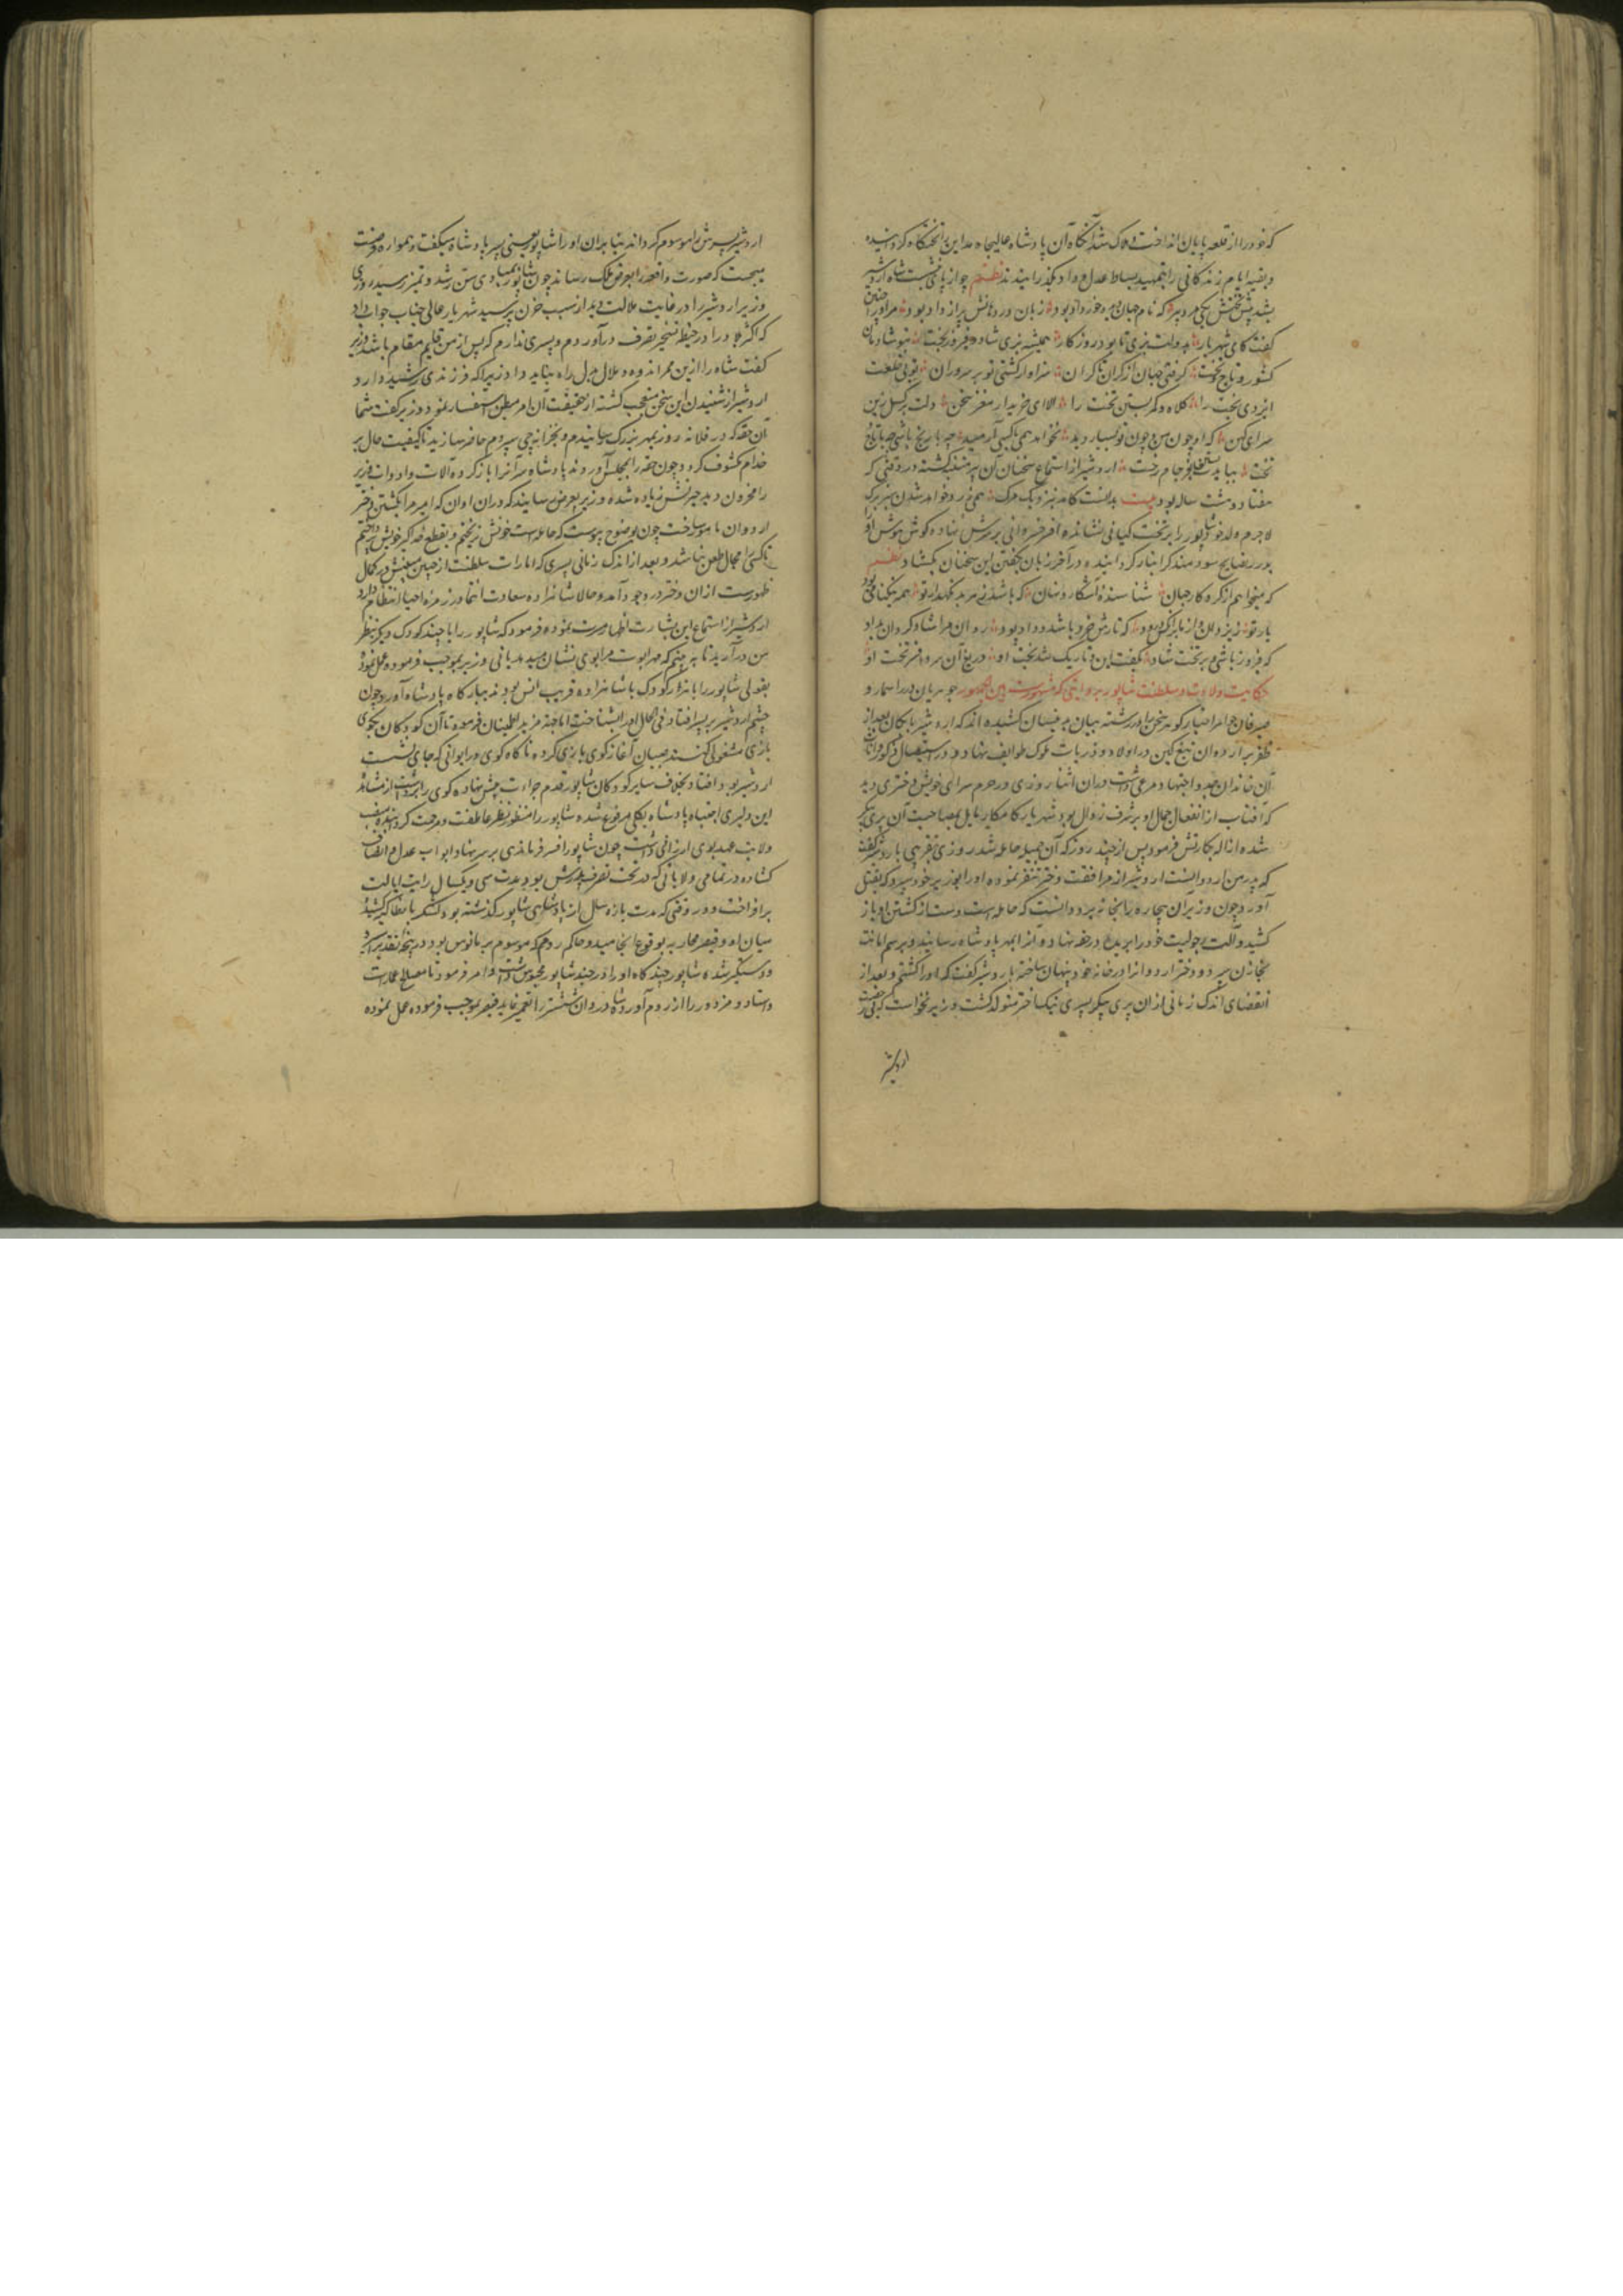 که خود را از قلعه پایان انداخت هلاک شد آنگاه آن پادشاه عالیجاه مداین را تختگاه گردانیده
و بقیه ایام زندگانی را بتمهید بساط عدل و داد بگذرانیدند نظم چو از پادشاه اردشیر
بشد پیش تختش یکی مرد پیر که نام جهاندیده خراد بود زبان و روانش پر از داد بود
گفت کای شهریار بدولت بزی تا بود روزگار همیشه بزی شاد و فیروزبخت بتو شادمان
کشور و تاج و تخت گرفتی جهان از کران تا کران سزاوار گشتی تو بر سروران توئی خلعت
ایزدی بخت را کلاه و کمر بستن تخت را الا ای خریدار مغز سخن دلت برگسل زین
سرای کهن که او چون من و چون تو بسیار دید نخواهد همی با کسی آرمید چه با رنج باشی چه با تاج
تخت بباید بستن بفرجام رخت اردشیر از استماع سخنان آن پیر متنبه گشته در وقتی که
هفتاد و هشت ساله بود بیت بدانست کامد بنزدیک مرگ همی زرد خواهد شدن سبز برگ
لاجرم ولد خود شاپور را بر تخت کیانی نشانده افسر خسروانی بر سرش نهاده گوش هوش او را
بدرر نصایح سودمند گرانبار گردانیده در آخر زبان بگفتن این سخنان بگشاد نظم
که میخواهم از کردگار جهان شناسنده آشکار و نهان که باشد ز هر بد نگهدار تو همه نیکنامی بود
یار تو ز یزدان و از ما بر آنکس درود که تارش خرد باشد و داد پود روان مرا شاد گردان بداد
که فیروز باشی بر تخت شاد بگفت این و تاریک شد بخت او دریغ آن سر و افسر و تخت او
حکایت ولادت و سلطنت شاپور بروایتی که مشهورست بین الجمهور جوهریان درر اسمار و
صیرفیان جواهر اخبار گوهر سخن را در رشته بیان برینسان کشیده اند که اردشیر بابکان بعد از
ظفر بر اردوان تیغ کین در اولاد و ذریات ملوک طوایف نهاد و در استیصال ذکور و اناث
آن خاندان جد و اجتهاد مرعی داشت در آن اثنا روزی در حرم سرای خویش دختری دید
که آفتاب از انفعال جمال او بر شرف زوال بود شهریار کامکار مایل بمصاحبت آن پری پیکر
شده ازاله بکارتش فرمود پس از چند روز که آن جمیله حامله شد روزی بتقریبی با اردشیر گفت
که پدر من اردوانست اردشیر از مرافقت دختر تنفر نموده او را بوزیر خود سپرد که بقتل
آورد چون وزیر آن بیچاره را بخانه برد دانست که حامله است دست از کشتن او باز
کشید و آلت رجولیت خود را بریده در حقه نهاد و آنرا بمهر پادشاه رسانید و برسم امانت
بخازن سپرد و دختر اردوانرا در خانه خود پنهان ساخته با اردشیر گفت که او را کشتم و بعد از
انقضای اندک زمانی از آن پری پیکر پسری نیک اختر متولد گشت وزیر نخواست که بی رخصت
اردشیر
اردشیر پسرش را موسوم گرداند بنا بر آن او را شاپور یعنی پسر پادشاه میگفت و همواره فرصت
میجست که صورت واقعه را بعرض ملک رساند چون شاپور بمبادی سن رشد و تمیز رسید روزی
وزیر اردشیر را در غایت ملالت دید از سبب حزن پرسید شهریار عالی جناب جواب داد
که اکثر بلاد را در حیطه تسخیر و تصرف درآوردم و پسری ندارم که پس از من قایم مقام باشد وزیر
گفت شاه را ازین ممر اندوه و ملال بدل راه نباید داد زیرا که فرزندی رشید دارد
اردشیر از شنیدن این سخن متعجب گشته از حقیقت آن امر استفسار نمود وزیر گفت شما
آن حقه که در فلانه روز بمهر بزرگ رسانیدم و بخزانه چی سپردم حاضر سازید تا کیفیت حال بر
خدام مکشوف گردد چون حقه را بمجلس آوردند پادشاه سر آنرا باز کرده آلات و ادوات وزیر
را مخزون دید حیرتش زیاده شده وزیر بعرض رسانید که در آن اوان که امیر مرا بکشتن دختر
اردوان مامور ساخت چون بوضوح پیوست که حامله است خونش نریختم و بقطع ذکر خویش پرداختم
تا کسی را مجال طعن نباشد و بعد از اندک زمانی پسری که امارات سلطنت از جبین مبینش در کمال
ظهورست از آن دختر در وجود آمد و حالا شاهزاده سعادت انتما در زمره احیا انتظام دارد
اردشیر از استماع این بشارت اظهار مسرت نموده فرمود که شاپور را با چند کودک دیگر بنظر
من درآرید تا ببینم که مهر ابوت مرا بوی نشان میدهد یا نی وزیر بموجب فرموده عمل نموده
بقولی شاپور را با هزار کودک که با شاهزاده قریب السن بودند ببارگاه پادشاه آورد چون
چشم اردشیر بر پسر افتاد فی الحال او را بشناخت اما جهت مزید اطمینان فرمود تا آن کودکان بگوی
بازی مشغولی کنند صبیان آغاز گوی بازی کرده ناگاه گوی در ایوانی که جای نشست
اردشیر بود افتاد بخلاف سایر کودکان شاپور قدم جراءت پیش نهاده گوی را برداشت از مشاهده
این دلیری اشتباه پادشاه بکلی مرفوع شده شاپور را منظور نظر عاطفت و مرحمت گردانیده منصب
ولایت عهد بوی ارزانی داشت چون شاپور افسر فرماندهی بر سر نهاد ابواب عدل و انصاف
گشاده در تمامی ولایاتی که در تحت تصرف پدرش بود مدت سی و یکسال رایت ایالت
برافراخت و در وقتی که مدت یازده سال از پادشاهی شاپور گذشته بود لشکر بانطاکیه کشید
میان او و قیصر محاربه بوقوع انجامید و حاکم روم که موسوم بریانوس بود در پنجه تقدیر اسیر
و دستگیر شده شاپور چند گاه او را در جندیشاپور محبوس داشت و امر فرمود تا مصالح عمارت
و استاد و مزدور را از روم آورد و شادروان ششتر را تعمیر نماید قیصر بموجب فرموده عمل نموده